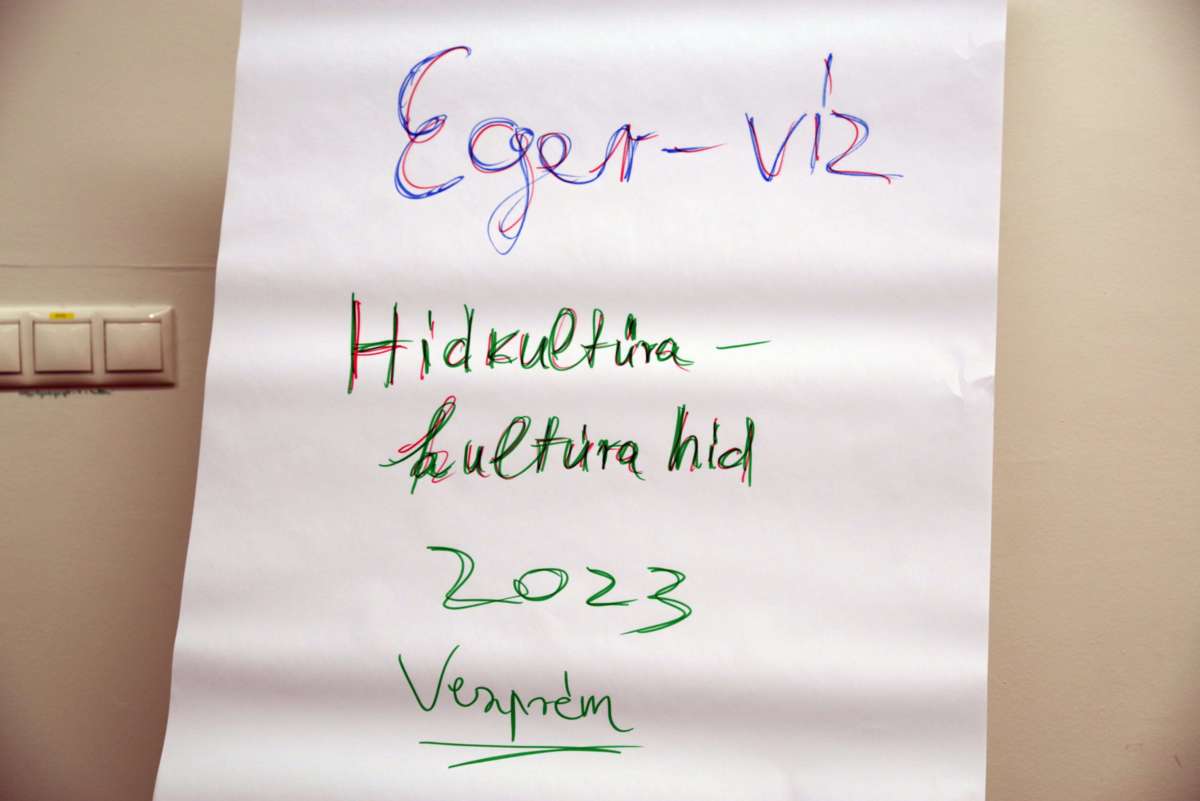 Eger-víz
Hídkultúra -
kultúra híd
2023
Veszprém